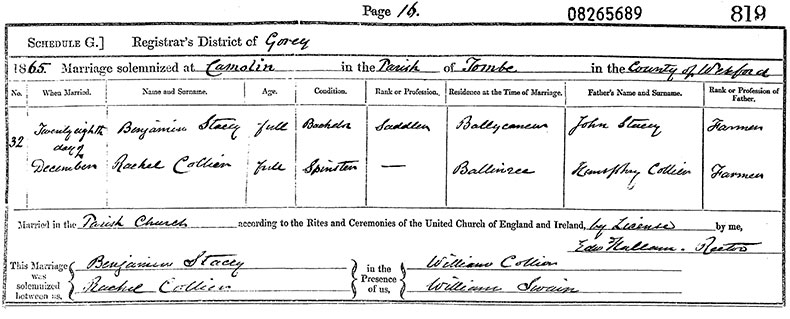 Page 16. 08265689 819
SCHEDULE G.] Registrar's District of Gorey
1865. Marriage solemnized at Camolin in the Parish of Tombe in the County of Wexford
No. When Married. Name and Surname. Age. Condition. Rank or Profession. Residence at the Time of Marriage. Father's Name and Surname. Rank or Profession of Father.
32 Twenty eighth day of December Benjamin Stacey full Bachelor Saddler Ballycanew John Stacey Farmer
Rachel Collier full Spinster — Ballinree Humphry Collier Farmer
Married in the Parish Church according to the Rites and Ceremonies of the United Church of England and Ireland, by License by me,
Edw Hallam. Rector
This Marriage was solemnized between us, Benjamin Stacey in the Presence of us, William Collier
Rachel Collier William Swain